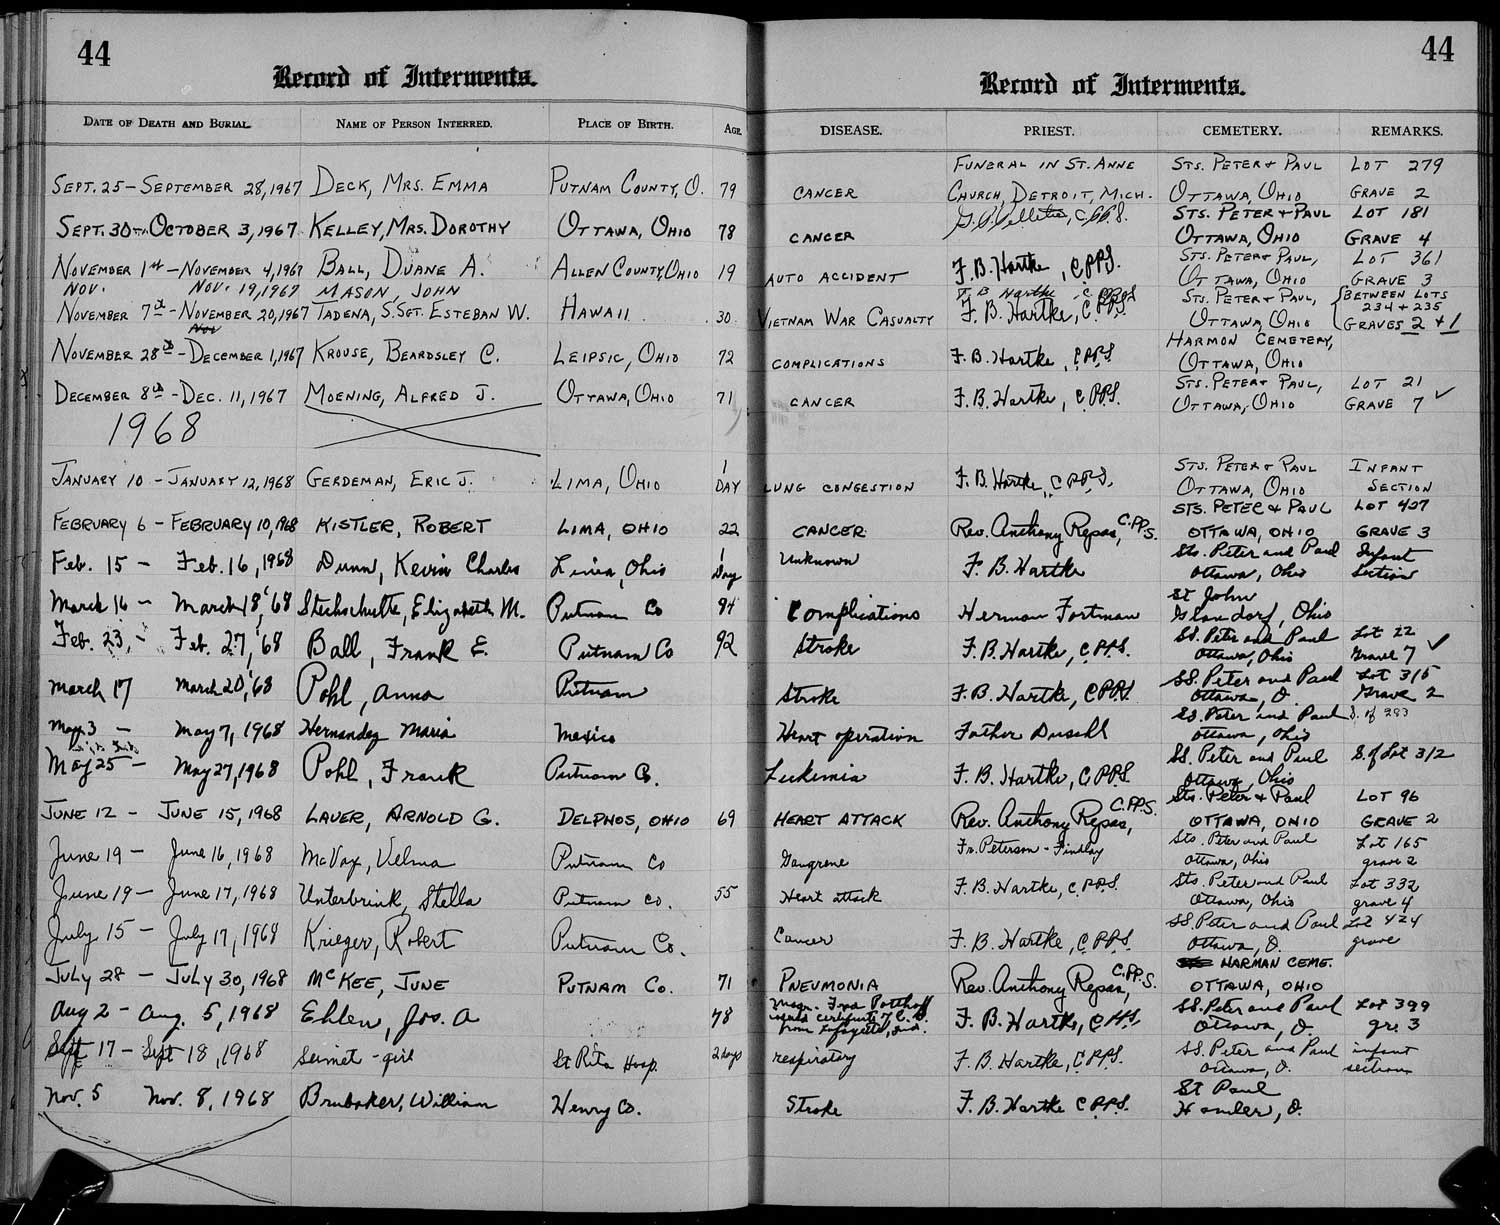 44
Record of Interments.
DATE OF DEATH AND BURIAL. NAME OF PERSON INTERRED. PLACE OF BIRTH. AGE.
44
Record of Interments.
DISEASE. PRIEST. CEMETERY. REMARKS.
FUNERAL IN ST. ANNE STS. PETER + PAUL LOT 279
SEPT. 25 - SEPTEMBER 28, 1967 DECK, MRS. EMMA PUTNAM COUNTY, O. 79 CANCER CHURCH, DETROIT, MICH. OTTAWA, OHIO GRAVE 2
STS. PETER + PAUL LOT 181
SEPT. 30TH OCTOBER 3, 1967 KELLEY, MRS. DOROTHY OTTAWA, OHIO 78 CANCER C.PP.S. OTTAWA, OHIO GRAVE 4
STS. PETER + PAUL, LOT 361
NOVEMBER 1st - NOVEMBER 4, 1967 BALL, DUANE A. ALLEN COUNTY OHIO 19 AUTO ACCIDENT F. B. Hartke, C.PP.S. OTTAWA, OHIO GRAVE 3
NOV. NOV. 19, 1967 MASON, JOHN F. B. Hartke C.PP.S STS. PETER + PAUL, BETWEEN LOTS
234 + 235
NOVEMBER 7th - NOVEMBER 20, 1967 TADENA, S.SGT. ESTEBAN W. HAWAII 30 VIETNAM WAR CASUALTY F. B. Hartke, C.PP.S. OTTAWA, OHIO GRAVES 2 + 1
Nov HARMON CEMETERY,
NOVEMBER 28th - DECEMBER 1, 1967 KROUSE, BEARDSLEY C. LEIPSIC, OHIO 72 COMPLICATIONS F. B. Hartke, C.PP.S. OTTAWA, OHIO
STS. PETER + PAUL, LOT 21
DECEMBER 8th - DEC. 11, 1967 MOENING, ALFRED J. OTTAWA, OHIO 71 CANCER F. B. Hartke, C.PP.S. OTTAWA, OHIO GRAVE 7 ✓
1968
1 STS. PETER + PAUL INFANT
JANUARY 10 - JANUARY 12, 1968 GERDEMAN, ERIC J. LIMA, OHIO DAY LUNG CONGESTION F. B. Hartke, C.PP.S. OTTAWA, OHIO SECTION
STS. PETER & PAUL LOT 407
FEBRUARY 6 - FEBRUARY 10, 1968 KISTLER, ROBERT LIMA, OHIO 22 CANCER Rev. Anthony Repas, C.PP.S. OTTAWA, OHIO GRAVE 3
1 Sts. Peter and Paul Infant
Feb. 15 - Feb. 16, 1968 Dunn, Kevin Charles Lima, Ohio Day Unknown F. B. Hartke Ottawa, Ohio Section
St John
March 16 - March 18, '68 Stechschulte, Elizabeth M. Putnam Co 94 Complications Herman Fortman Glandorf, Ohio
SS. Peter and Paul Lot 22
Feb. 23, - Feb. 27, '68 Ball, Frank E. Putnam Co 92 Stroke F. B. Hartke, C.PP.S. Ottawa, Ohio Grave 7 ✓
SS. Peter and Paul Lot 315
March 17 March 20, '68 Pohl, Anna Putnam Stroke F. B. Hartke, C.PP.S. Ottawa, O. Grave 2
SS. Peter and Paul S. of 283
May 3 - May 7, 1968 Hernandez Maria Mexico Heart operation Father Duschl Ottawa, Ohio
SS. Peter and Paul S. of Lot 312
May 25 - May 27, 1968 Pohl, Frank Putnam Co. Lukemia F. B. Hartke, C.PP.S. Ottawa, Ohio
Sts. Peter & Paul LOT 96
JUNE 12 - JUNE 15, 1968 LAUER, ARNOLD G. DELPHOS, OHIO 69 HEART ATTACK Rev. Anthony Repas, C.PP.S. OTTAWA, OHIO GRAVE 2
Sts. Peter and Paul Lot 165
June 19 - June 16, 1968 McVay, Velma Putnam Co Gangrene Fr. Peterson - Findlay Ottawa, Ohio grave 2
Sts. Peter and Paul Lot 332
June 19 - June 17, 1968 Unterbrink, Stella Putnam Co. 55 Heart attack F. B. Hartke, C.PP.S. Ottawa, Ohio grave 4
SS. Peter and Paul Lot 424
July 15 - July 17, 1968 Krieger, Robert Putnam Co. Cancer F. B. Hartke, C.PP.S. Ottawa, O. grave
HARMAN CEME.
JULY 28 - JULY 30, 1968 McKEE, JUNE PUTNAM CO. 71 PNEUMONIA Rev. Anthony Repas, C.PP.S. OTTAWA, OHIO
Msgr. Potthoff SS. Peter and Paul Lot 399
Aug 2 - Aug. 5, 1968 Ehlen, Jos. A 78 certificate from Lafayette, Ind. F. B. Hartke, C.PP.S. Ottawa, O. gr. 3
SS. Peter and Paul infant
Sept 17 - Sept 18, 1968 girl St Rita Hosp. 2 days respiratory F. B. Hartke, C.PP.S. Ottawa, O. section
St Paul
Nov. 5 Nov. 8, 1968 Brubaker, William Henry Co. Stroke F. B. Hartke C.PP.S. Hamler, O.